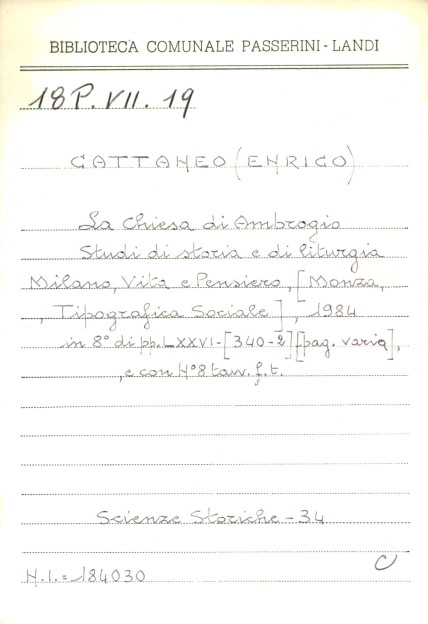 BIBLIOTECA COMUNALE PASSERINI - LANDI
18P.VII.19
CATTANEO (ENRICO)
La Chiesa di Ambrogio
Studi di storia e di liturgia
Milano, Vita e Pensiero, [Monza,
, Tipografica Sociale], 1984
in 8° di pp. LXXVI-[340-2][pag. varia],
, e con N°8 tavv. f.t.
Scienze Storiche - 34
C
N.I.=184030